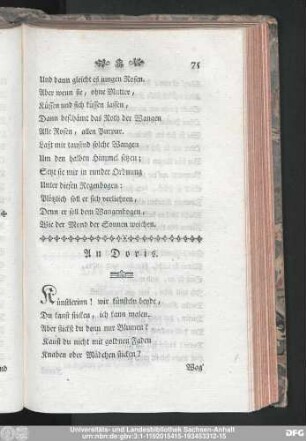 75
Und dann gleicht es jungen Rosen.
Aber wenn sie, ohne Mutter,
Küssen und sich küssen lassen,
Dann beschämt das Roth der Wangen
Alle Rosen, allen Purpur.
Laßt mir tausend solche Wangen
Um den halben Himmel setzen;
Setzt sie mir in runder Ordnung
Unter diesen Regenbogen:
Plötzlich soll er sich verliehren,
Denn er soll dem Wangenbogen,
Wie der Mond der Sonnen weichen.
An Doris.
Künstlerinn! wir künsteln beyde,
Du kanst sticken, ich kann malen.
Aber stickst du dann nur Blumen?
Kanst du nicht mit goldnen Faden
Knaben oder Mädchen sticken?
Mag'
Universitäts- und Landesbibliothek Sachsen-Anhalt
urn:nbn:de:gbv:3:1-1192015415-193453312-15
DFG